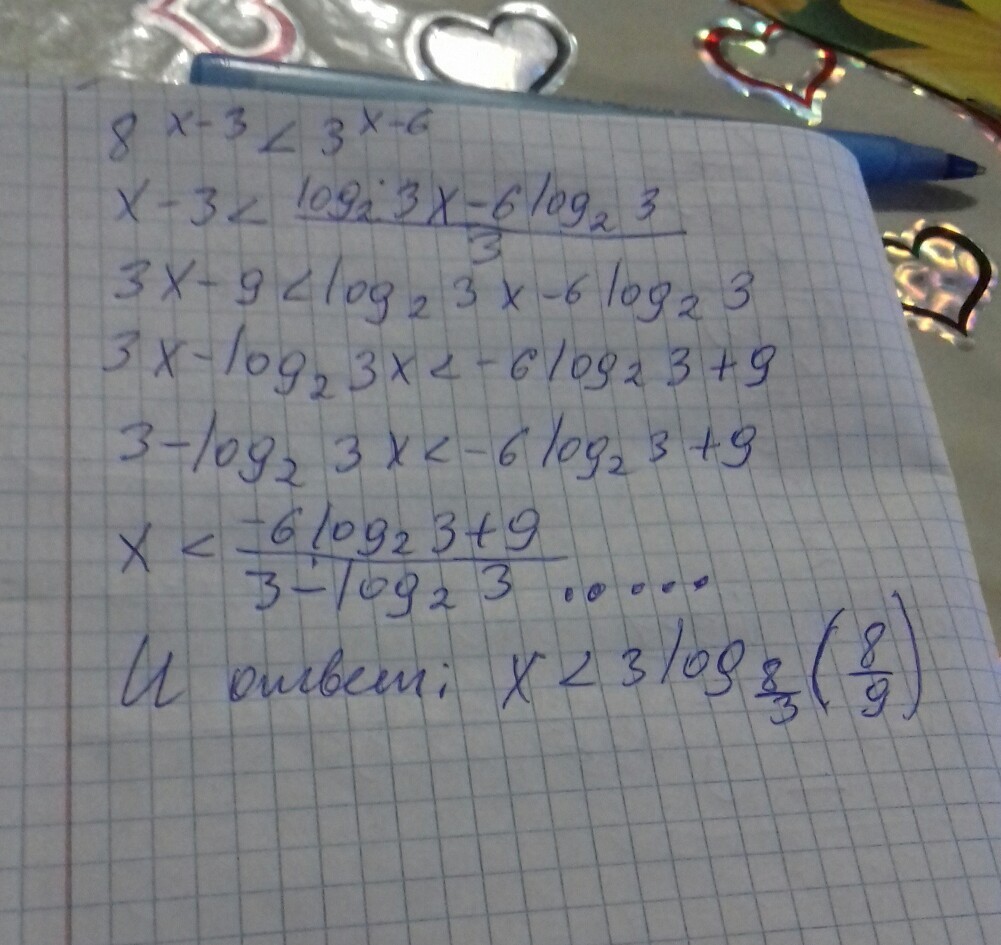 8^(x-3) < 3^(x-6)
x - 3 < (log₂ 3x - 6 log₂ 3)/3
3x - 9 < log₂ 3x - 6 log₂ 3
3x - log₂ 3x < -6 log₂ 3 + 9
3 - log₂ 3x < -6 log₂ 3 + 9
x < (-6 log₂ 3 + 9)/(3 - log₂ 3) .....
И ответ: x < 3 log_(8/3) (8/9)